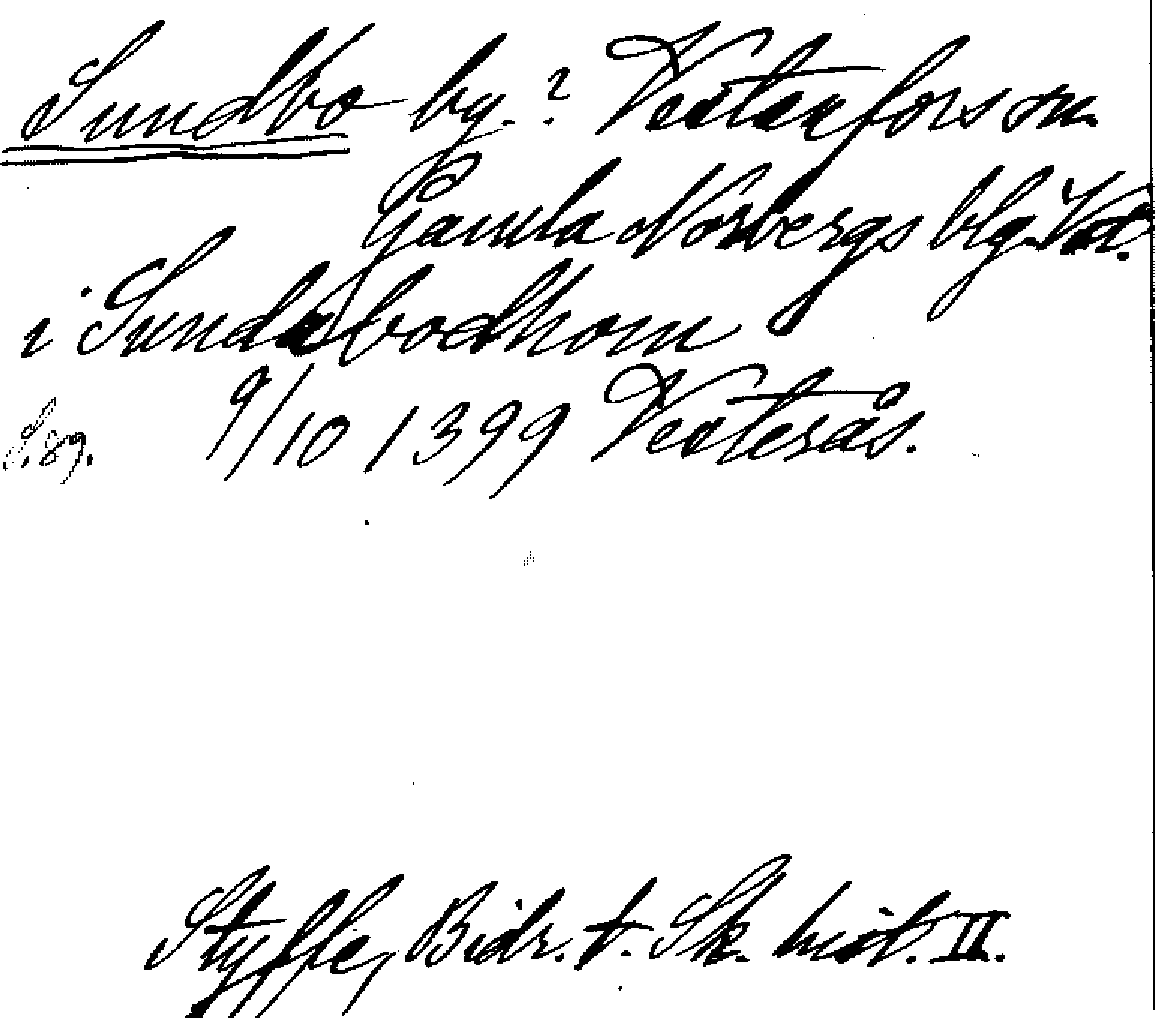 Sundbo by.? Vesterfors sn.
Gamla Norbergs blg. Vst.
i Sundabodhom
S. 89. 9/10 1399 Vesterås.
Styffe, Bidr. t. Sk. hist. II.